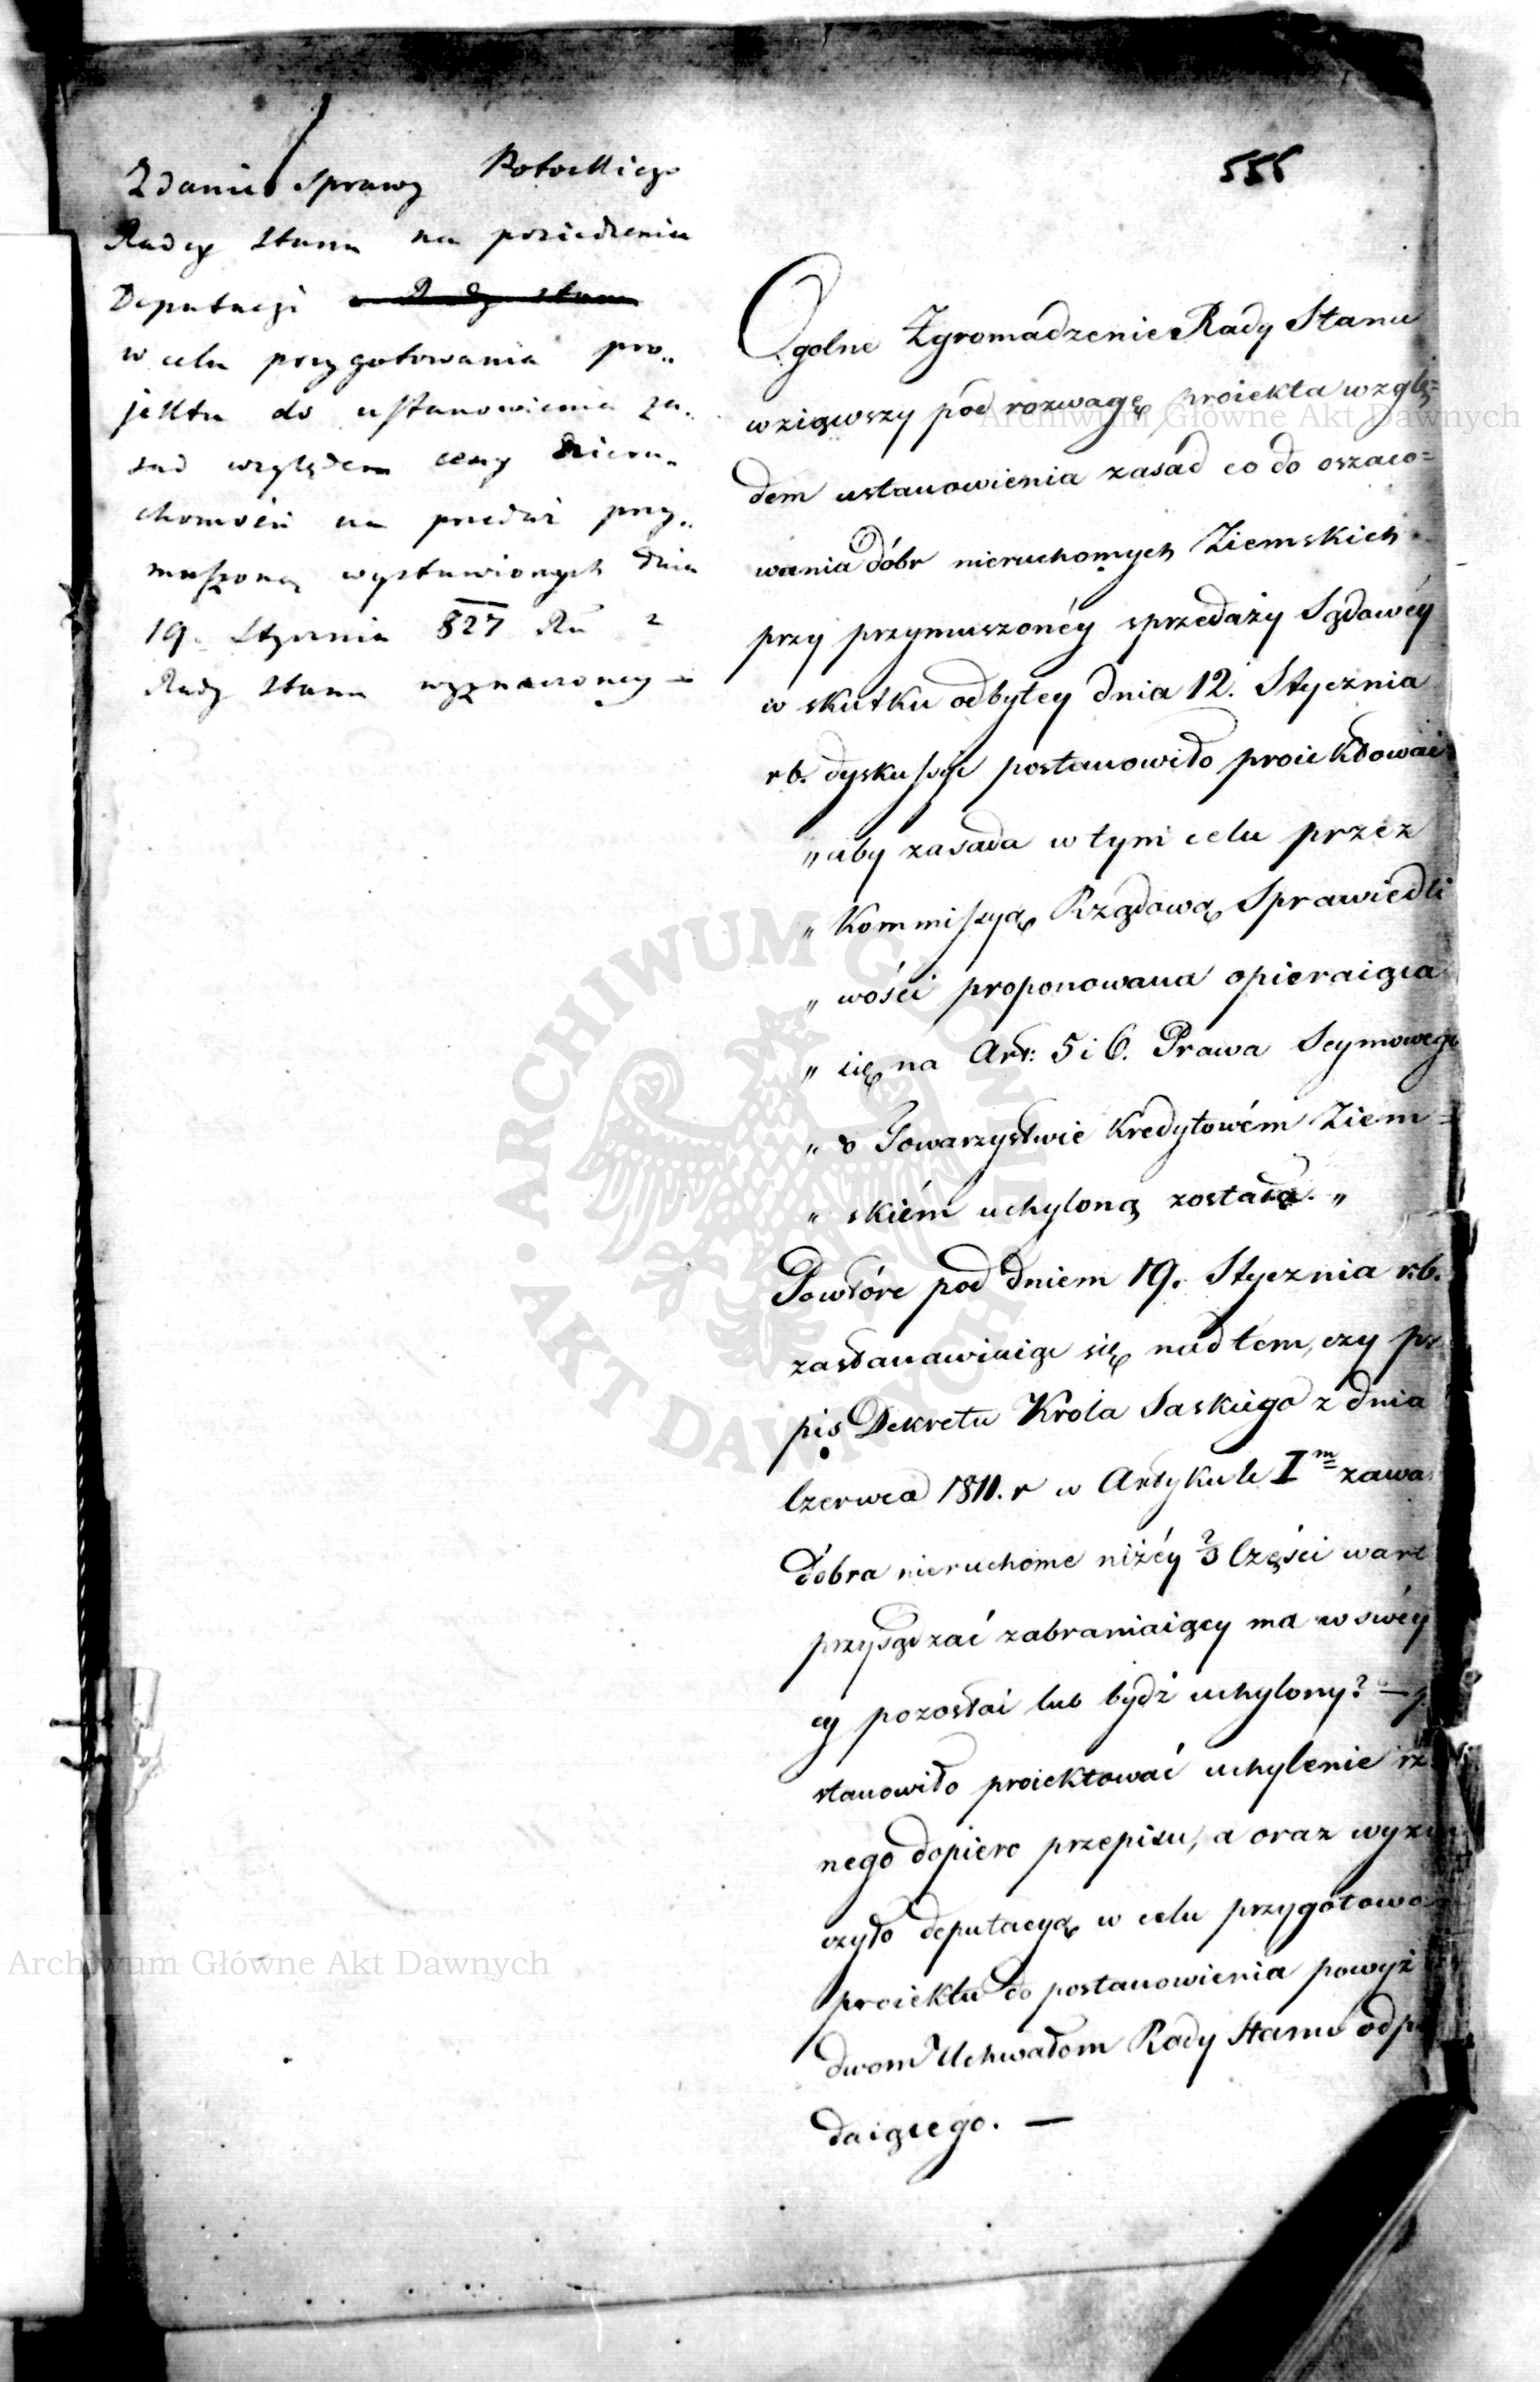 556
Zdanie Sprawy Potockiego
Radcy Stanu na posiedzeniu
Deputacji
w celu przygotowania pro„
jektu do ustanowienia za„
sad względem ceny nieru„
chomości na przedaż przy„
muszoną wystawionych dnia
19. Stycznia 827 Ru z
Rady Stanu wyznaczoney —
Ogolne Zgromadzenie Rady Stanu
wziąwszy pod rozwagę proiekta wzglę=
dem ustanowienia zasad co do oszaco=
wania dóbr nieruchomych Ziemskich
przy przymuszonéy sprzedaży Sądowéy
w skutku odbytey dnia 12. Stycznia
rb. dyskussyi postanowiło proiektować
„aby zasada w tym celu przez
„Kommissyą Rządową Sprawiedli
„wości proponowana opieraiąca
„się na Art: 5 i 6. Prawa Seymowego
„o Towarzystwie Kredytowém Ziem=
„skiém uchyloną została.„
Powtóre pod dniem 19. Stycznia r.b.
zastanawiaiąc się nad tem, czy prz
pis Dekretu Krola Saskiego z dnia
Czerwca 1811. r w Artykule Im zawa
dobra nieruchome niżéy 2/3 Części wart
przysądzać zabraniaiący ma w swéy
cy pozostać lub bydź uchylony? —
stanowiło proiektować uchylenie rz
nego dopiero przepisu, a oraz wyzn
czyło deputacyą w celu przygotowa
proiektu do postanowienia powyż
dwom Uchwałom Rady Stanu odpo
daiącego. —
Archiwum Główne Akt Dawnych
ARCHIWUM GŁÓWNE AKT DAWNYCH
Archiwum Główne Akt Dawnych